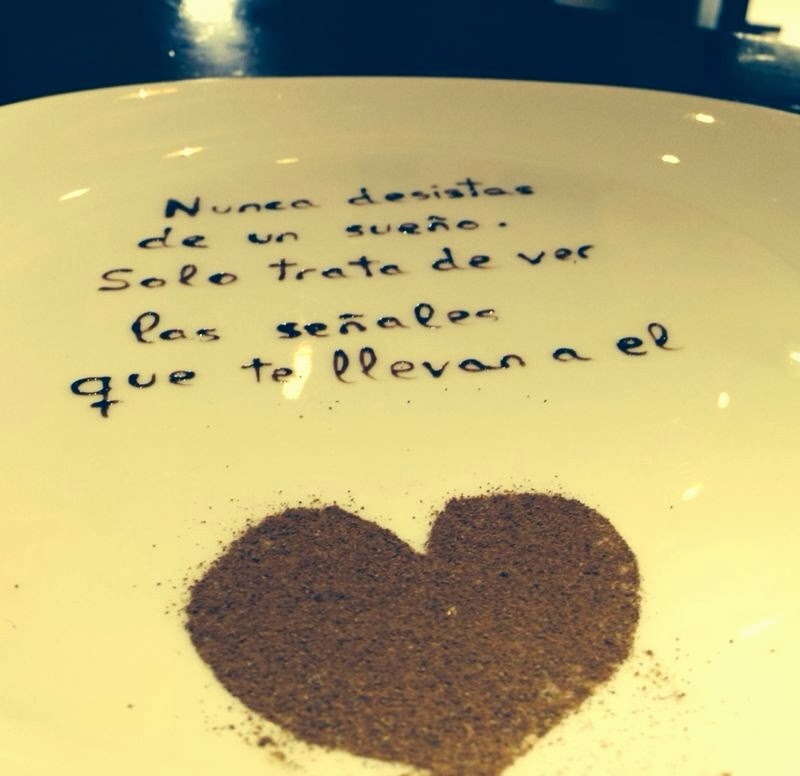 Nunca desistas
de un sueño.
Solo trata de ver
las señales
que te llevan a el